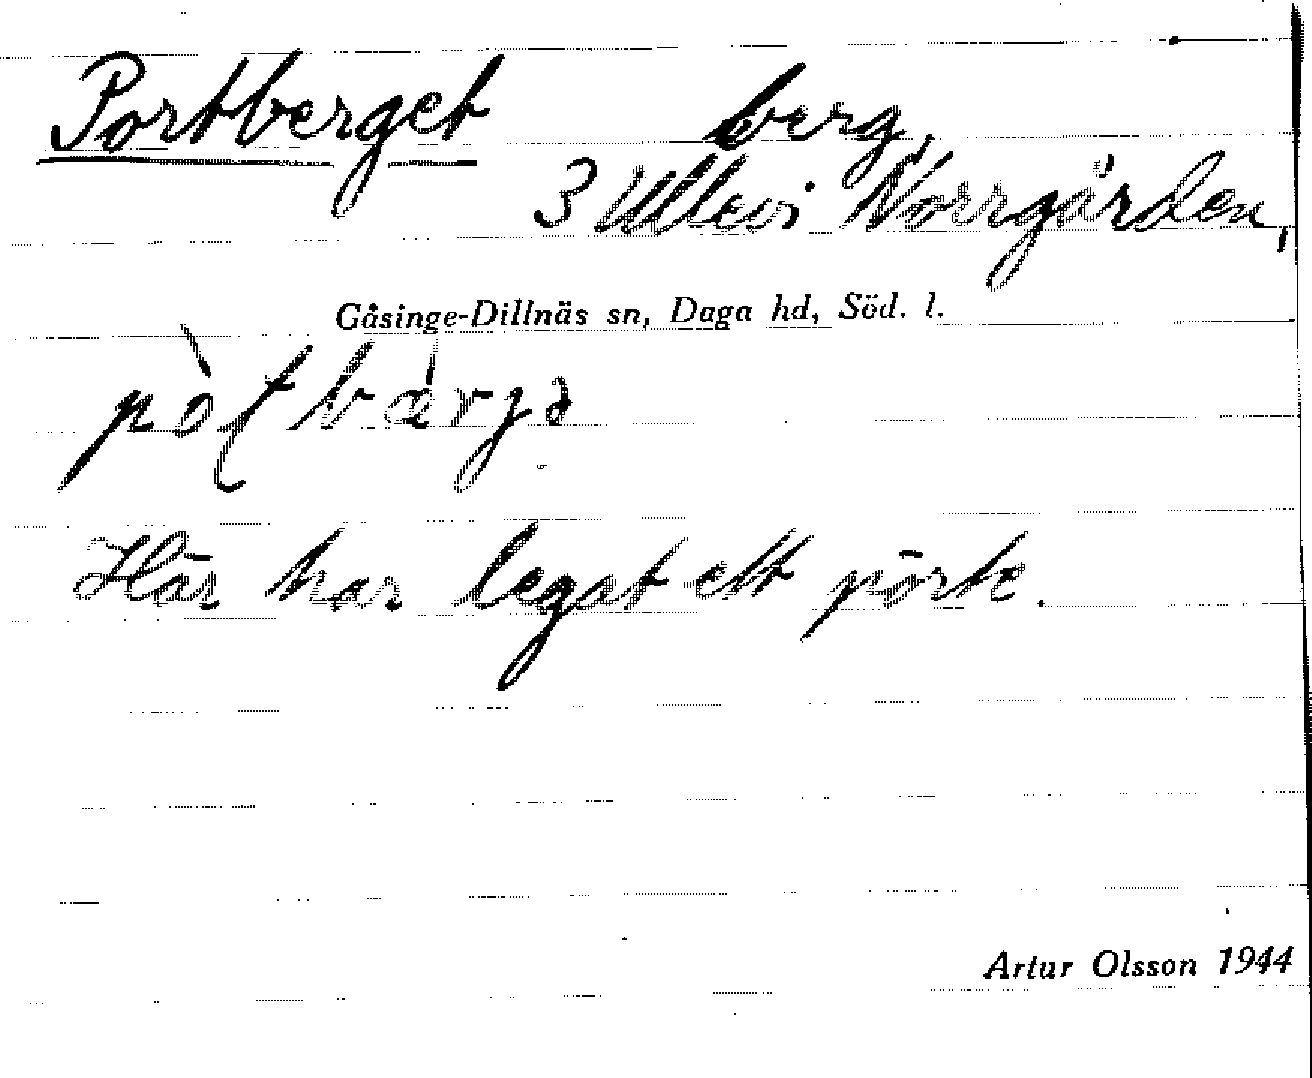 Portberget berg,
3 Ullevi Norrgården,
Gåsinge-Dillnäs sn, Daga hd, Söd. l.
Här har legat ett pörte.
Artur Olsson 1944